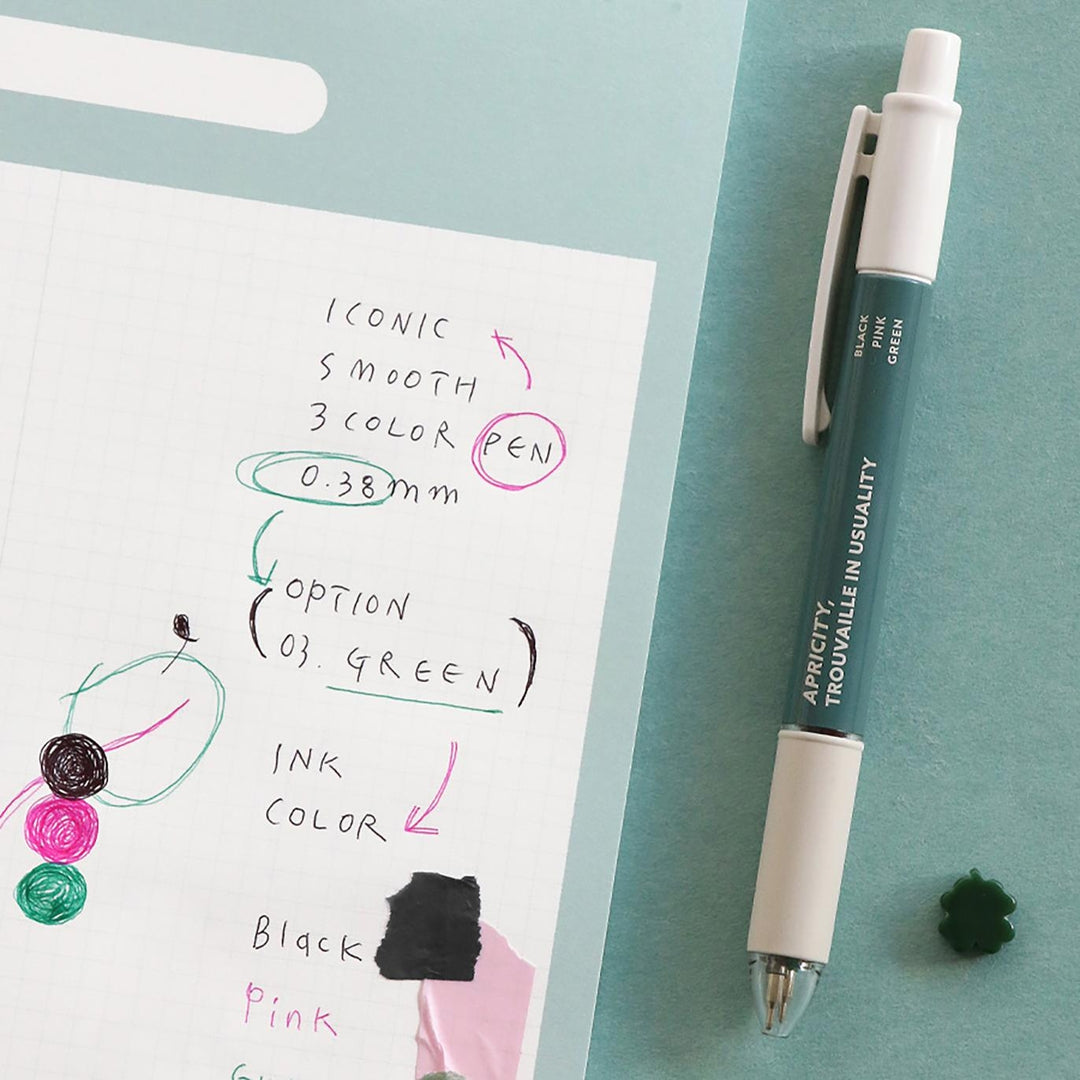 ICONIC
SMOOTH
3 COLOR PEN
0.38mm
OPTION
(03. GREEN)
INK
COLOR
Black
Pink
BLACK
PINK
GREEN
APRICITY,
TROUVAILLE IN USUALITY